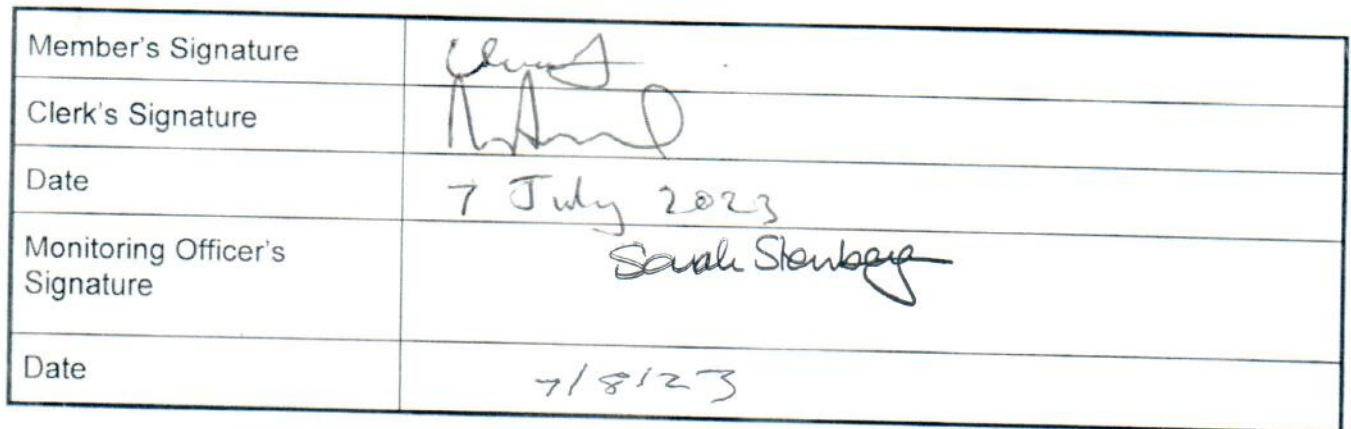 Member's Signature
Clerk's Signature
Date
7 July 2023
Monitoring Officer's
Signature
Sarah
Date
7/8/23